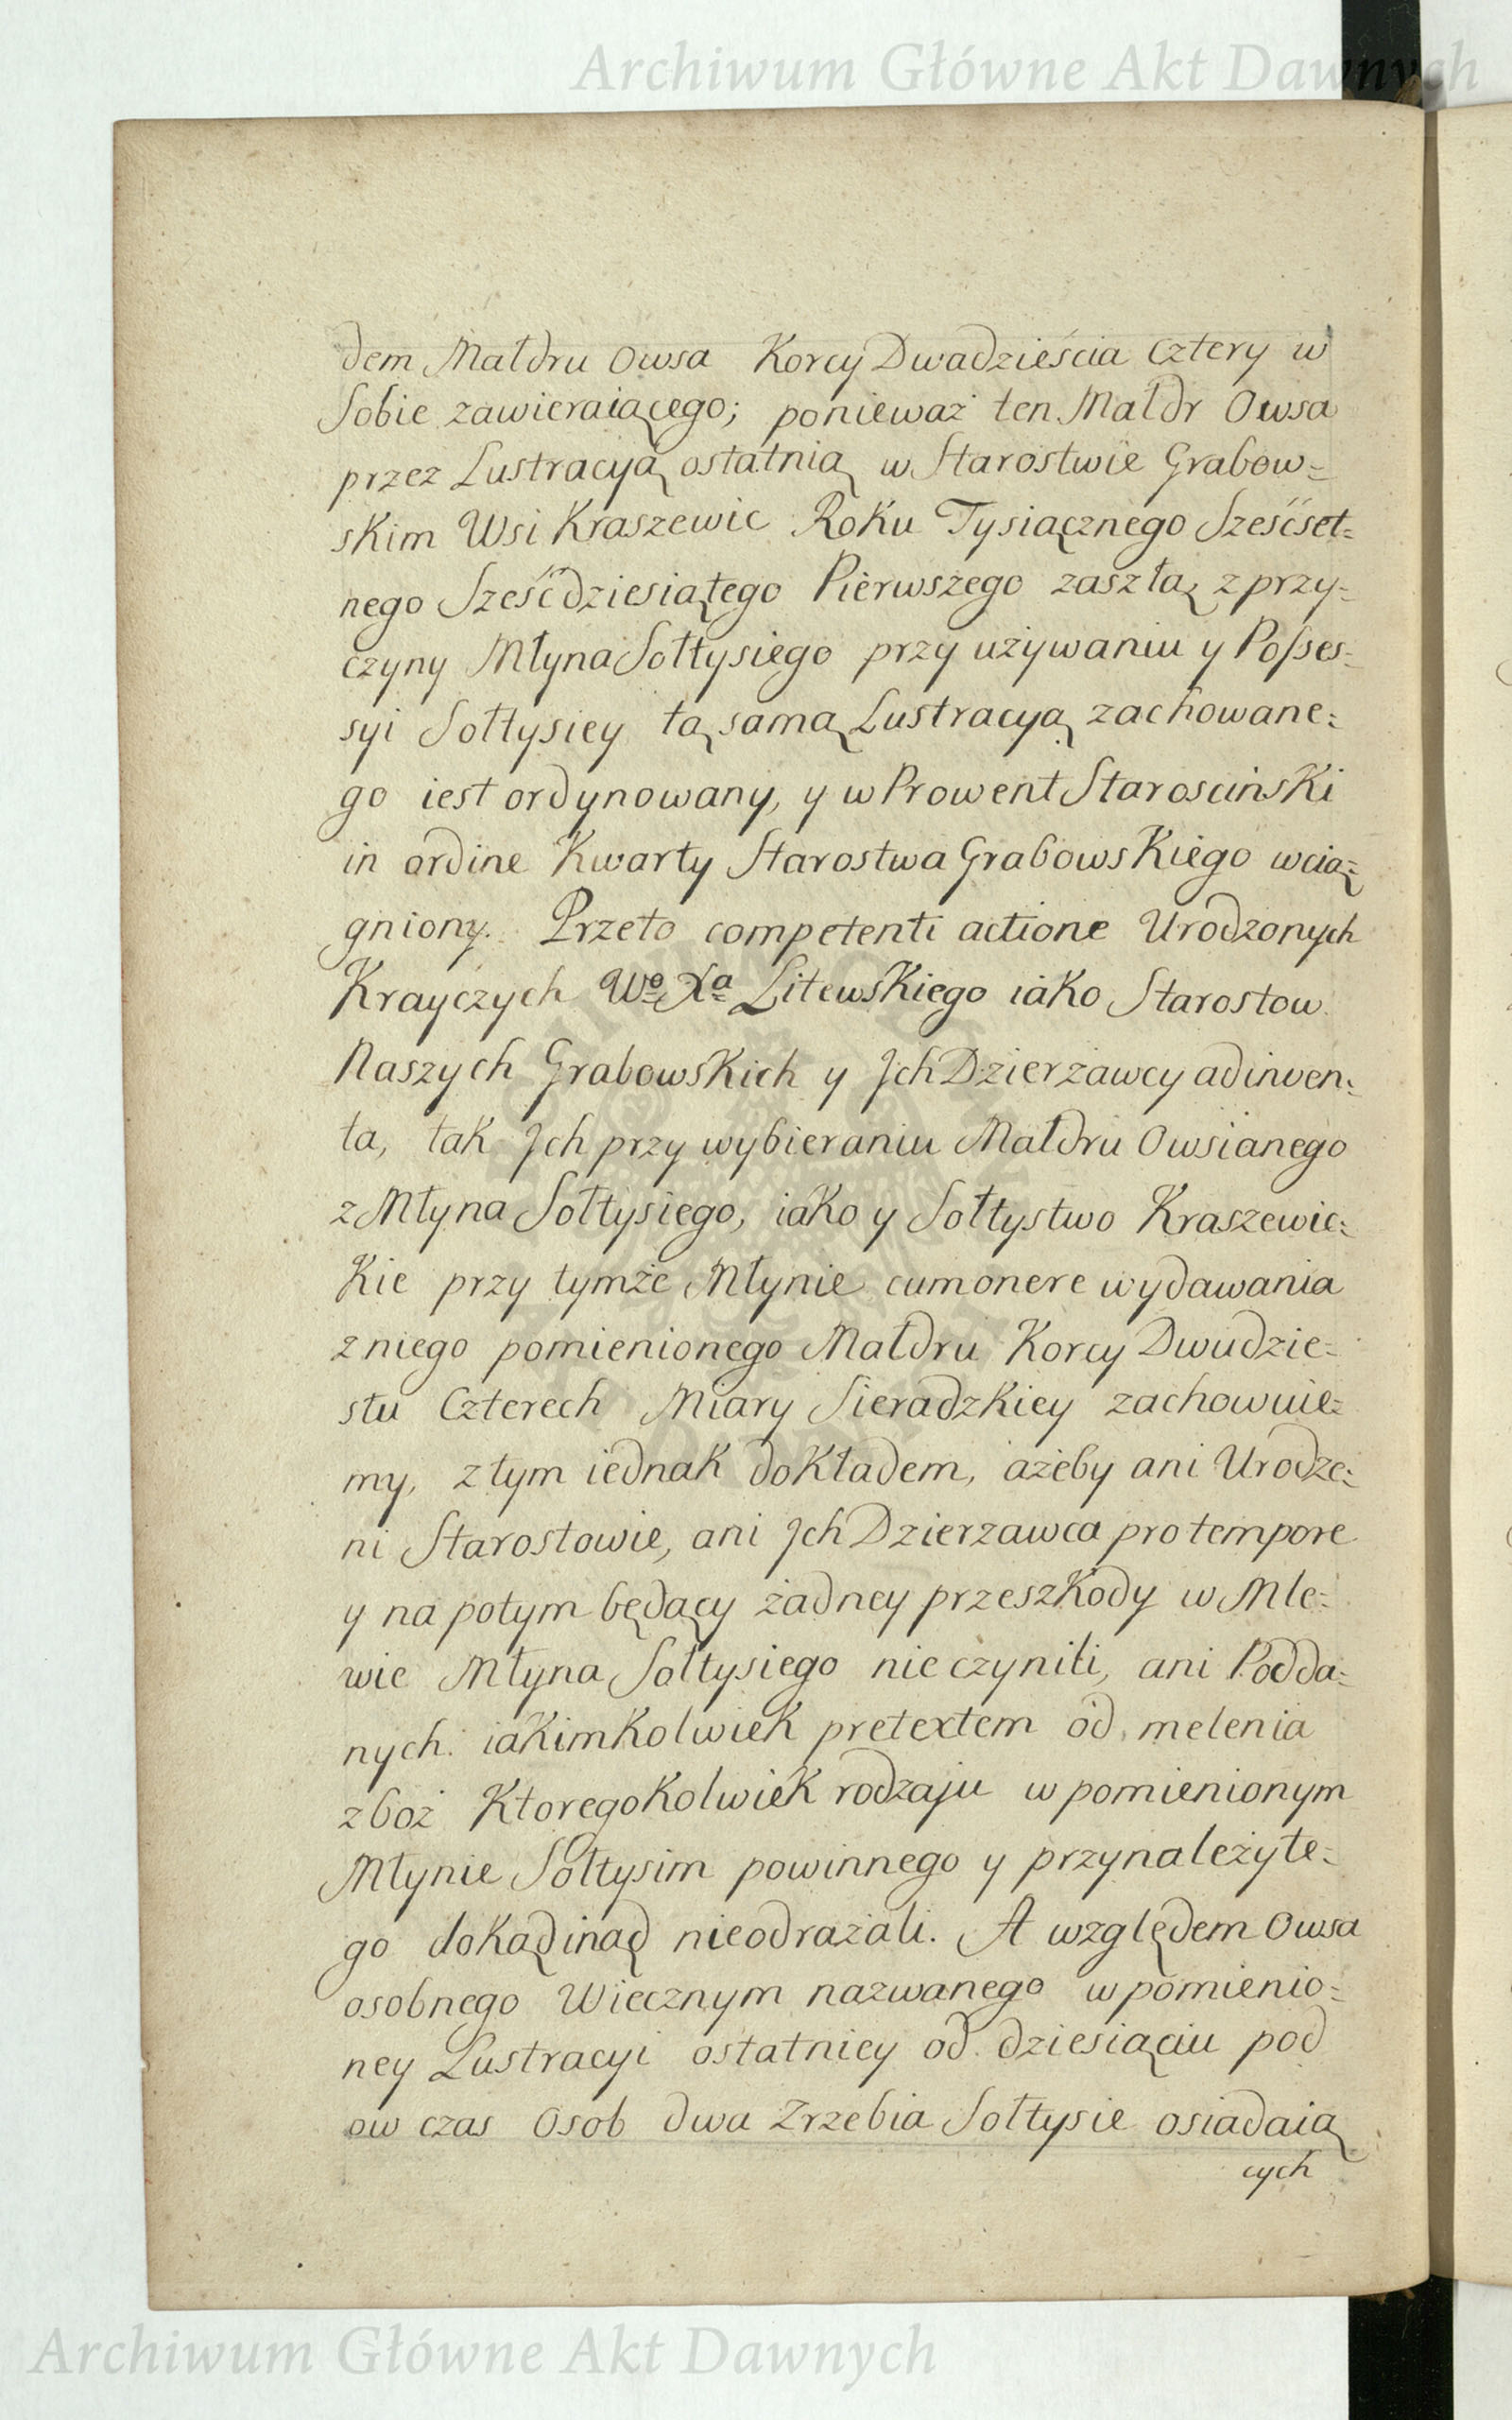 Archiwum Główne Akt Dawnych
dem Małdru Owsa Korcy Dwadzieścia Cztery w
Sobie zawieraiącego; ponieważ ten Małdr Owsa
przez Lustracyą ostatnią w Starostwie Grabow=
skim Wsi Kraszewic Roku Tysiącznego Sześćset=
nego Sześćdziesiątego Pierwszego zaszłą z przy=
czyny Młyna Sołtysiego przy używaniu y Posses=
syi Sołtysiey tą samą Lustracyą zachowane=
go iest ordynowany, y w Prowent Starosciński
in ordine Kwarty Starostwa Grabowskiego wcią=
gniony. Przeto competenti actione Urodzonych
Krayczych Wo Xa Litewskiego iako Starostow
Naszych Grabowskich y Jch Dzierżawcy adinven=
ta, tak Jch przy wybieraniu Małdru Owsianego
z Młyna Sołtysiego, iako y Sołtystwo Kraszewic=
Kie przy tymże Młynie cum onere wydawania
z niego pomienionego Małdru Korcy Dwudzie=
stu Czterech Miary Sieradzkiey zachowuie=
my, z tym iednak dokładem, ażeby ani Urodze=
ni Starostowie, ani Jch Dzierzawca pro tempore
y na potym będący żadney przeszkody w Mle=
wie Młyna Sołtysiego nie czynili, ani Podda=
nych iakimkolwiek pretextem od melenia
zboż Ktoregokolwiek rodzaju w pomienionym
Młynie Sołtysim powinnego y przynależyte=
go dokąd inąd nieodrażali. A względem Owsa
osobnego Wiecznym nazwanego w pomienio=
ney Lustracyi ostatniey od dziesiąciu pod
ow czas Osob dwa Zrzebia Sołtysie osiadaią
cych
Archiwum Główne Akt Dawnych